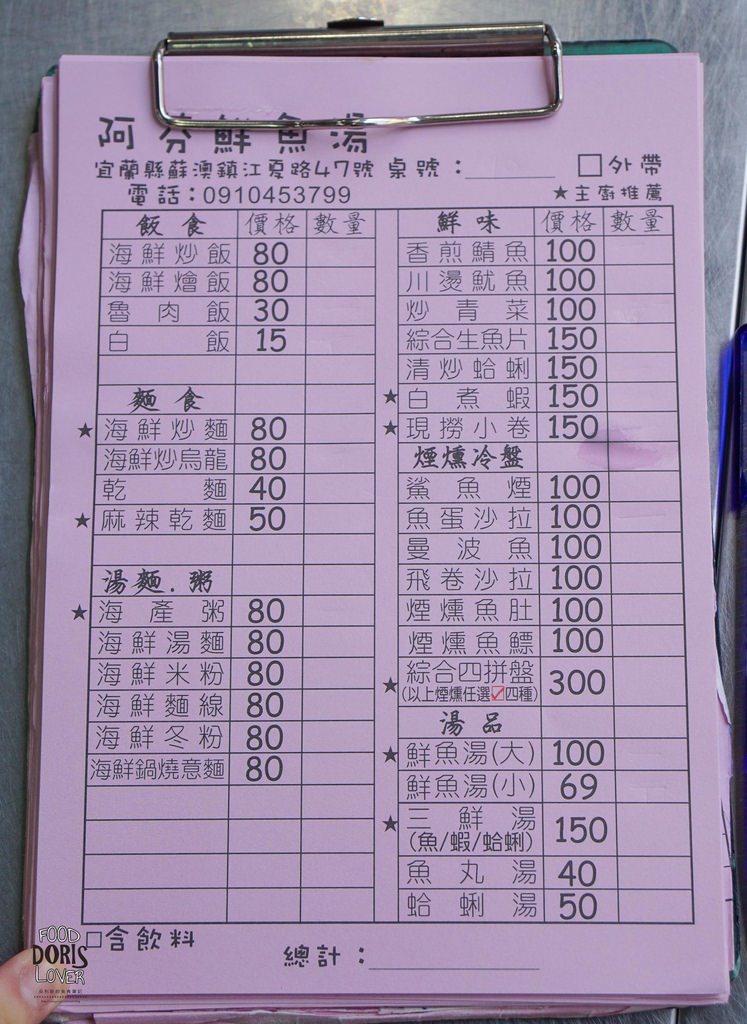 阿芬鮮魚湯
宜蘭縣蘇澳鎮江夏路47號 桌號：______ □外帶
電話：0910453799 ★主廚推薦
飯食 價格 數量
海鮮炒飯 80
海鮮燴飯 80
魯肉飯 30
白飯 15
麵食
★ 海鮮炒麵 80
海鮮炒烏龍 80
乾麵 40
★ 麻辣乾麵 50
湯麵.粥
★ 海產粥 80
海鮮湯麵 80
海鮮米粉 80
海鮮麵線 80
海鮮冬粉 80
海鮮鍋燒意麵 80
鮮味 價格 數量
香煎鯖魚 100
川燙魷魚 100
炒青菜 100
綜合生魚片 150
清炒蛤蜊 150
★ 白煮蝦 150
★ 現撈小卷 150
煙燻冷盤
鯊魚煙 100
魚蛋沙拉 100
曼波魚 100
飛卷沙拉 100
煙燻魚肚 100
煙燻魚鰾 100
★ 綜合四拼盤 300
(以上煙燻任選☑四種)
湯品
★ 鮮魚湯(大) 100
鮮魚湯(小) 69
★ 三鮮湯 150
(魚/蝦/蛤蜊)
魚丸湯 40
蛤蜊湯 50
□含飲料
總計：____________
FOOD
DORIS
LOVER